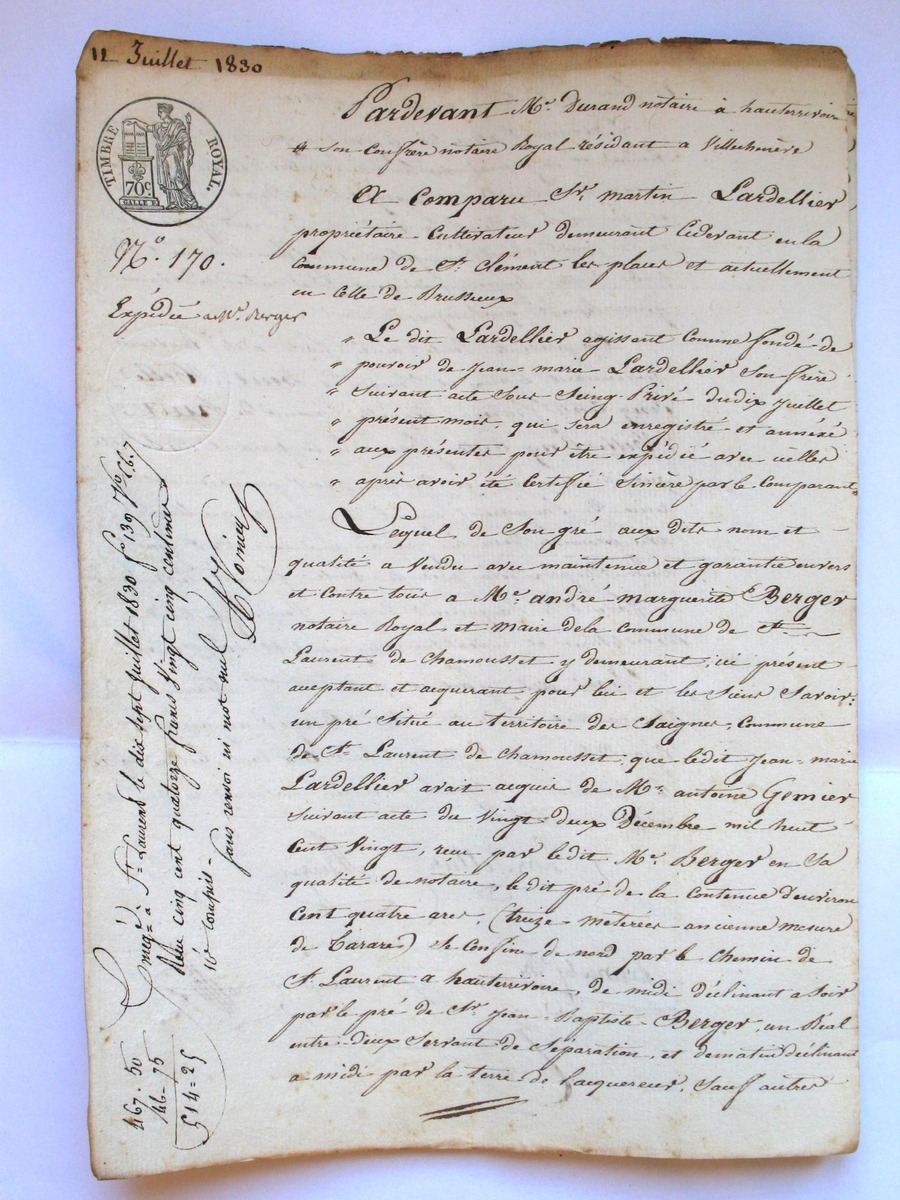 11 Juillet 1830
TIMBRE ROYAL.
70c
SALLE D
Pardevant Me. Durand notaire à hauterrivoire
& son Confrère notaire Royal résidant a Villechenève
A Comparu Sr. martin Lardellier
propriétaire-Cultivateur demeurant Cidevant en la
Commune de St. Clément les places et actuellement
en Celle de Brussieux
No. 170.
Expédiée a Mr. Berger
" Le dit Lardellier agissant Comme fondé de
" pouvoir de Jean-marie Lardellier Son frère
" Suivant acte Sous Seing-Privé du dix Juillet
" présent mois, qui Sera enregistré et annéxé
" aux présentes pour être expédié avec icelles
" apres avoir été Certifié Sincère par le Comparant
Lequel de Son gré aux dits nom et
qualité a Vendu avec maintenue et garantie envers
et Contre tous a Me. andré marguerite Berger
notaire Royal et maire de la commune de St.
Laurent de Chamousset y demeurant, ici présent
acceptant et acquerant pour lui et les Siens Savoir:
un pré Situé au territoire des Saignes, Commune
de St. Laurent de Chamousset, que ledit Jean-marie
Lardellier avait acquis de Mr. antoine Gemier
Suivant acte du Vingt-deux Décembre mil huit
Cent Vingt, recu par le dit Me. Berger en Sa
qualité de notaire, le dit pré de la Contenue d'environ
Cent quatre ares, (treize meterées ancienne mesure
de Tarare) Se Confine de nord par le Chemin de
St. Laurent a hauterrivoire, de midi déclinant a Soir
par le pré de Sr. Jean-Baptiste-Berger, un Réal
entre-deux Servant de Séparation, et de matin déclinant
a midi par la terre de l'acquereur, Sauf autres
Enreg.é à St. Laurent le dix Sept juillet 1830 fo. 139 Vo. C. 6. 7
Reçu cinq cent quatorze francs Vingt cinq centimes
10e compris -
sans renvoi ni mot nul
467. 50
46 - 75
514 = 25